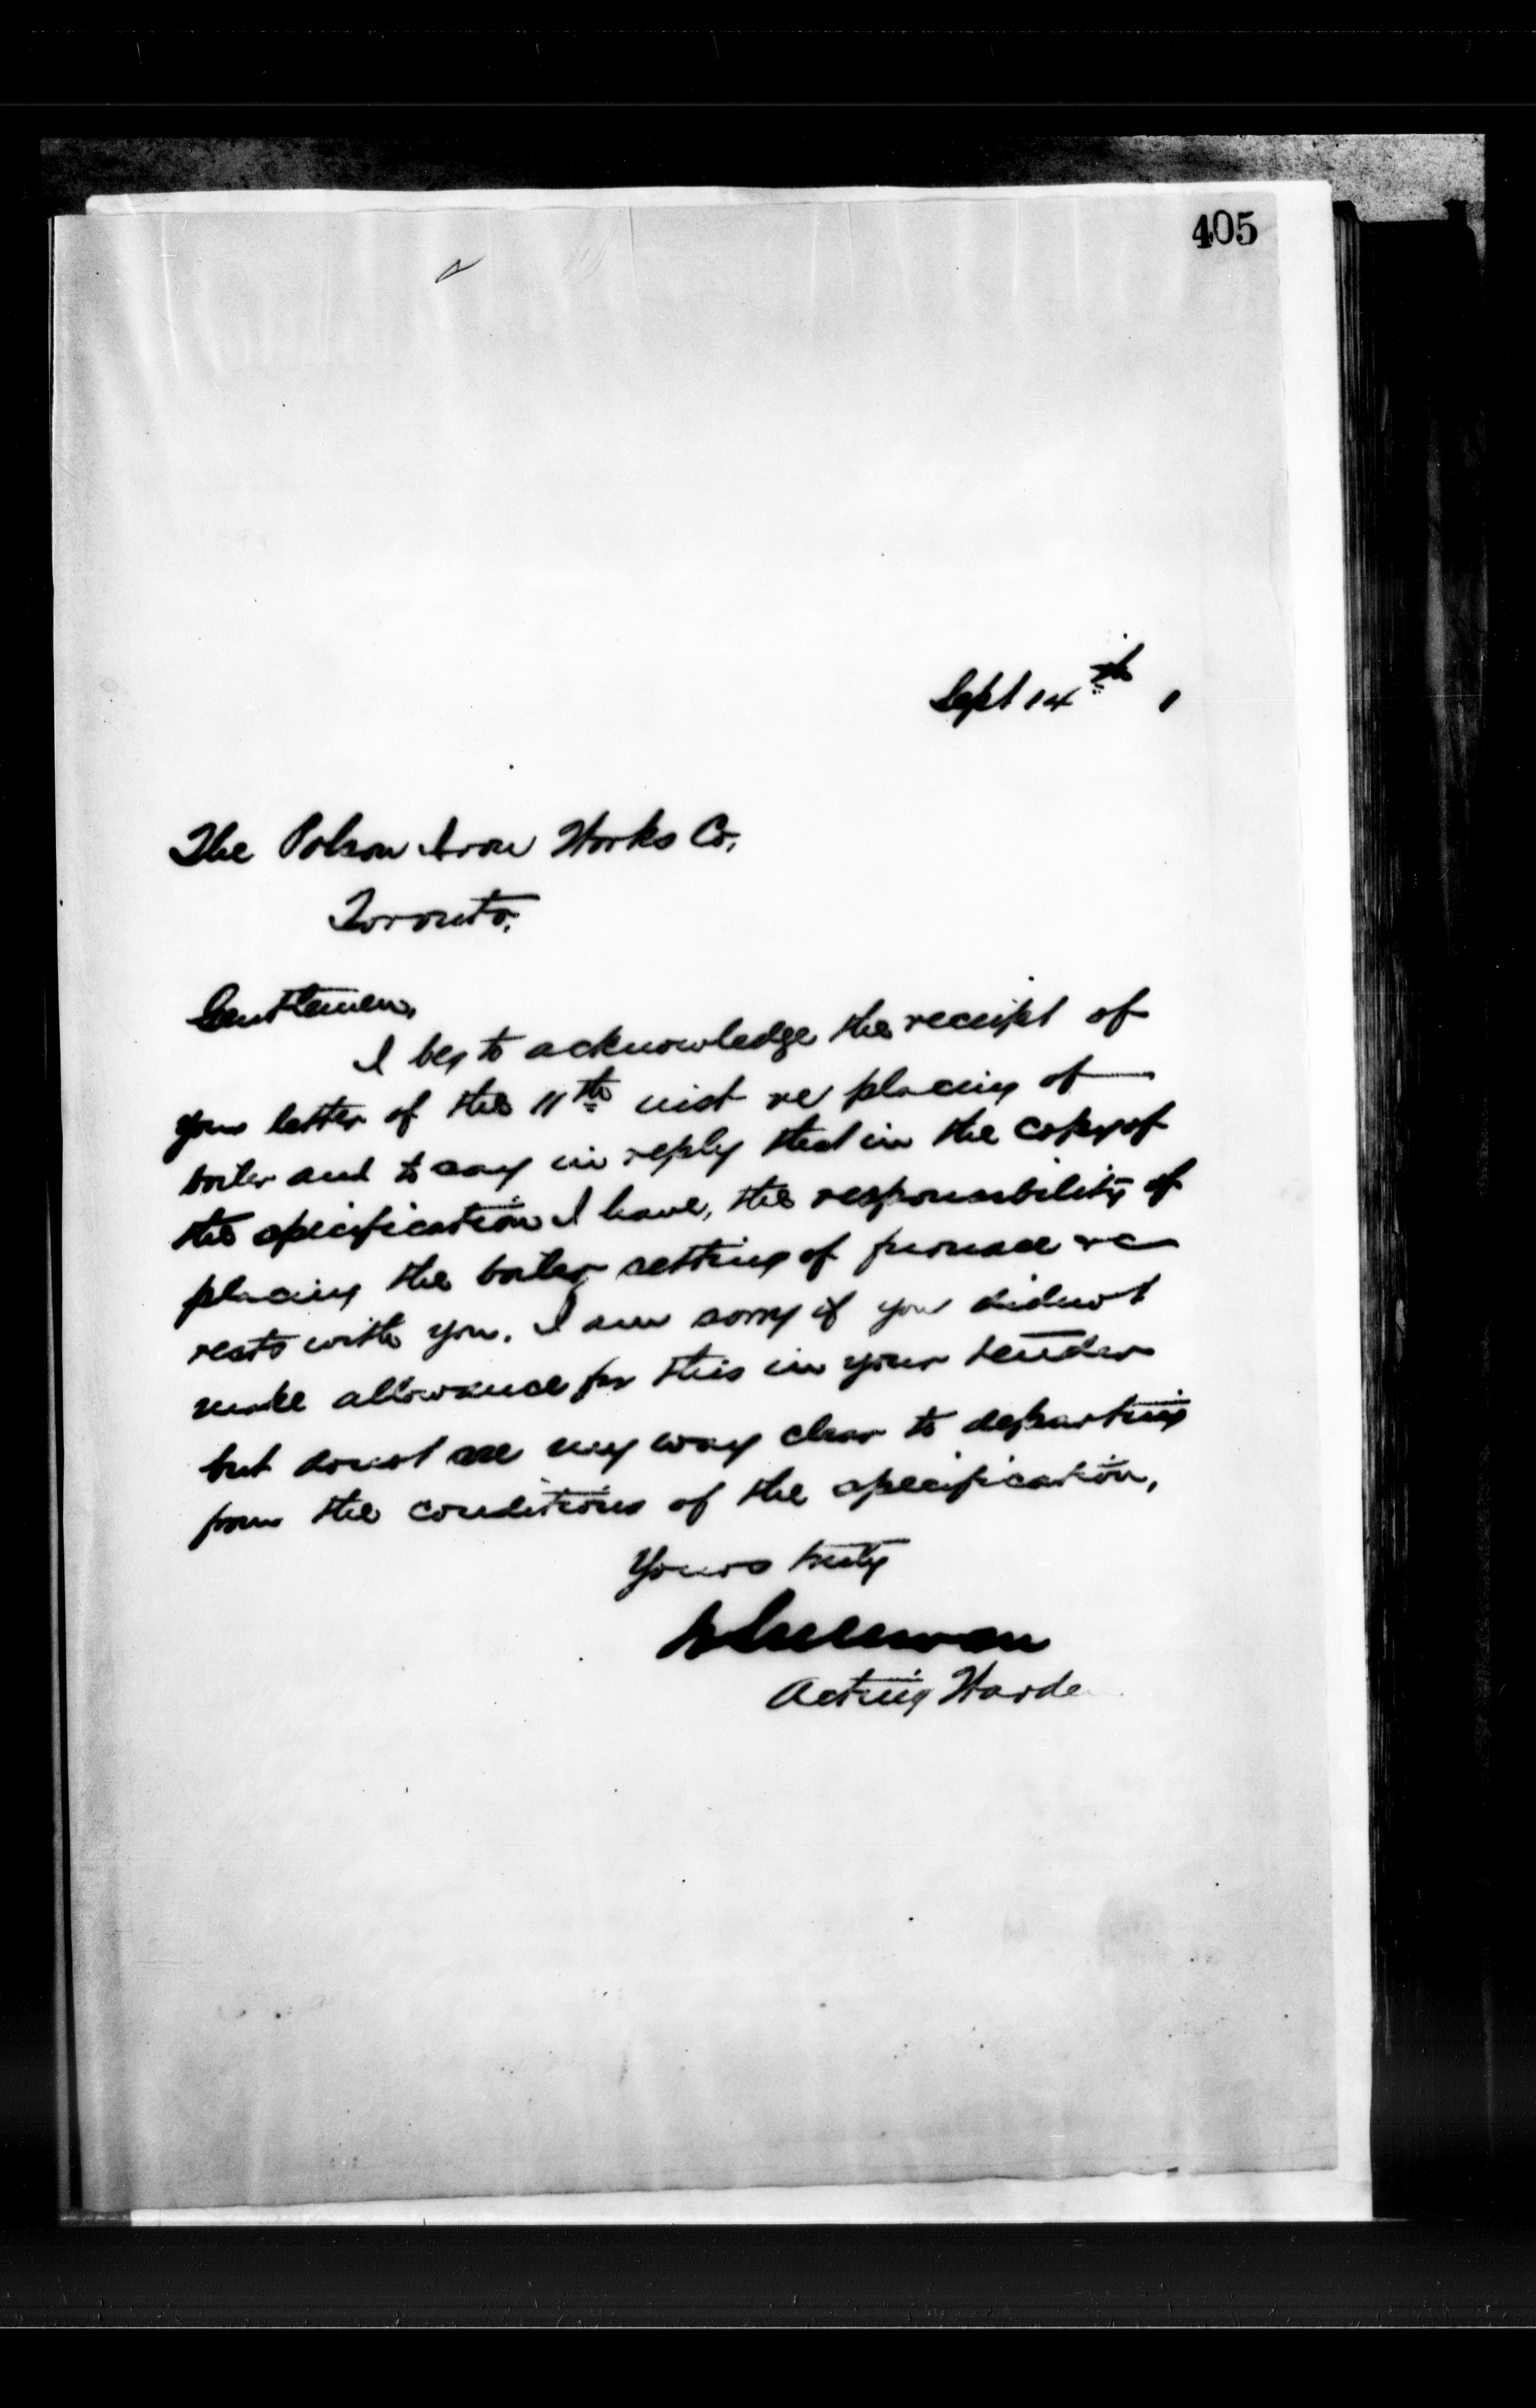 405
Sept 14th 1
The Polson Iron Works Co.
Toronto.
Gentlemen,
I beg to acknowledge the receipt of
your letter of the 11th inst re placing of
boiler and to say in reply that in the copy of
the specification I have, the responsibility of
placing the boiler setting of furnace &c
rests with you. I am sorry if you did not
make allowance for this in your tender
but do not see my way clear to departing
from the conditions of the specification.
Yours truly
Acting Warde